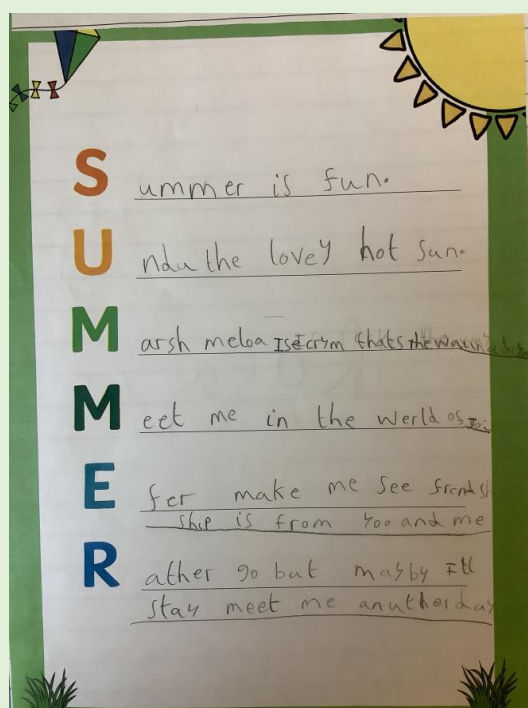 Summer is fun.
Undu the lovey hot sun.
Marsh meloa Isecrym thats the
Meet me in the werld of
Efer make me see
ship is from yoo and me
Rather go but mayby Itl
stay meet me anutherday